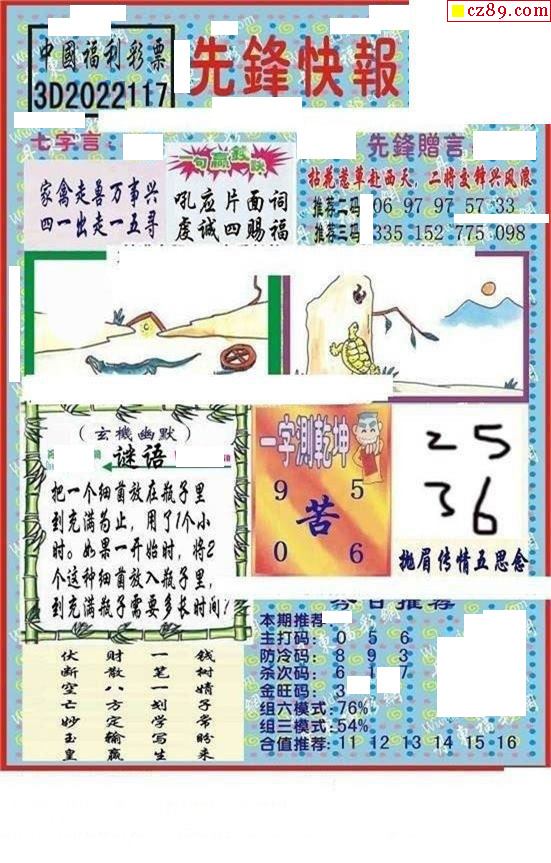 cz89.com
中國福利彩票
3D2022117
先鋒快報
七字言：
家禽走喜万事兴
四一出走一五寻
一句赢钱诀
吼应片面词
虔诚四赐福
先鋒贈言：
拈花惹草赴西天，二将交锋兴风浪
推荐二码 06 97 97 57 33
推荐三码 335 152 775 098
(玄機幽默)
谜语
把一个细菌放在瓶子里
到充满为止，用了1个小
时。如果一开始时，将2
个这种细菌放入瓶子里，
到充满瓶子需要多长时间？
一字測乾坤
9 5
苦
0 6
25
36
抛眉传情五思念
伏断空亡妙玉皇
财散八方定输赢
一笔一划学写生
钱树婧子常盼来
今日推荐
本期推荐
主打码： 0 5 6
防冷码： 8 9 3
杀次码： 6 1 7
金旺码： 3
组六模式：76%
组三模式：54%
合值推荐：11 12 13 14 15 16